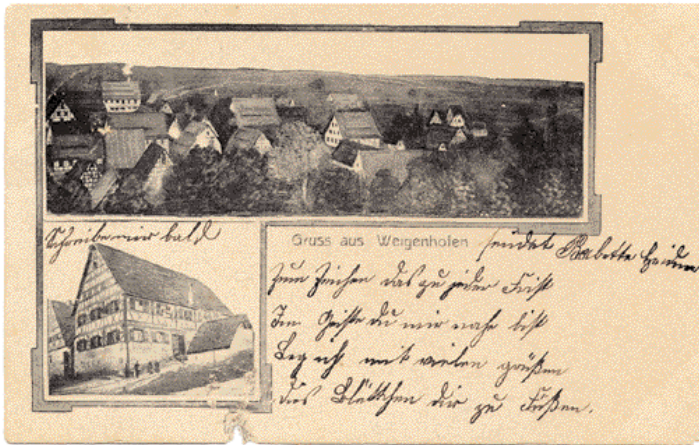 Schreibe mir bald
Gruss aus Weigenhofen sendet Babette
Zum Zeichen das zu jeder Frist
Im Geiste du mir nahe bist
Leg ich mit vielen grüßen
Das Blättchen dir zu Füßen.